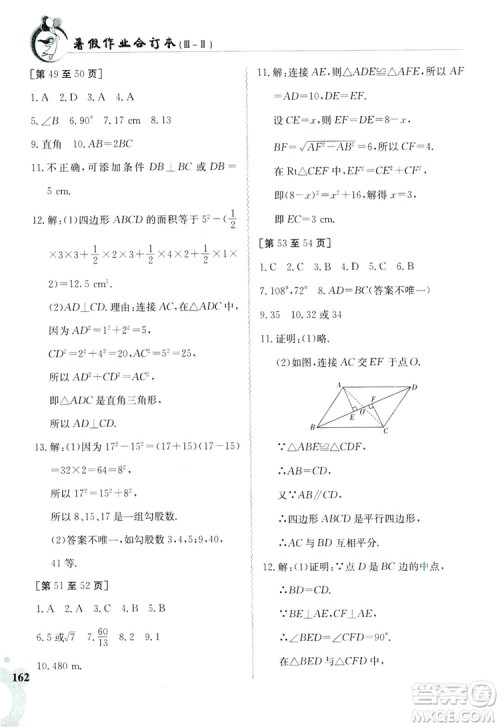 暑假作业合订本(Ⅲ-Ⅱ)
[第 49 至 50 页]
1.A 2.D 3.A 4.C
5.∠B 6.90° 7.17 cm 8.C
9.直角 10.AB=2BC
11.不正确,可添加条件 DB⊥BC 或 DB=
5 cm.
12.解:(1)四边形 ABCD 的面积等于 5²-(1/2
×3×3+1/2×2×3+1/2×4×1+1/2×1
×2)=12.5 cm².
(2)AD⊥CD.理由:连接 AC,在△ADC
中,因为 AD²=1²+2²=5,
CD²=2²+4²=20,AC²=5²=25,
所以 AD²+CD²=AC²,
即△ADC 是直角三角形,
所以 AD⊥CD.
13.解:(1)因为 17²-15²=(17+15)(17-15)
=32×2=64=8²,
所以 17²=8²+15²,
所以 8,15,17 是一组勾股数.
(2)答案不唯一,如:3,4,5;9,40,
41 等.
[第 51 至 52 页]
1.A 2.D 3.A 4.C 5.C
6.5 或√7 7.60/13 8.4 9.10
10.480 m.
162
11.解:连接 AF,易证△ADE≌△AFE,所以 AF
=AD=10,DE=EF.
设 EC=x,则 EF=DE=8-x,
BF=√(AF²-AB²)=6,CF=4.
在 Rt△CEF 中,EF²=CE²+CF²,
即(8-x)²=x²+16,故 x=3.
即 EC=3 cm.
[第 53 至 54 页]
1.C 2.C 3.A 4.A 5.D 6.D
7.108°,72° 8.AB=CD(答案不唯一)
9.35 10.32 或 34
11.证明:(1)略.
(2)如图,连接 AC 交 EF 于点 O.
A D F E O B C
∵△ABE≌△CDF,
∴∠ABE=∠CDF,
∴AB∥CD.
又∵AB=CD,
∴四边形 ABCD 是平行四边形,
∴AO=CO.
12.解:(1)证明:∵点 D 是 BC 边的中点,
∴BD=CD.
∵DF=DE,∠BDE=∠CDF,
∴△BDE≌△CDF,